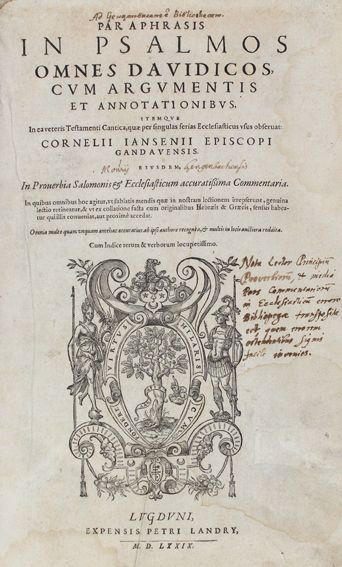 Ad Gengenbacensem Bibliothecam.
PARAPHRASIS
IN PSALMOS
OMNES DAVIDICOS,
CVM ARGVMENTIS
ET ANNOTATIONIBVS.
ITEMQVE
In ea veteris Testamenti Cantica, quæ per singulas ferias Ecclesiasticus vsus obseruat:
CORNELII IANSENII EPISCOPI
GANDAVENSIS.
EIVSDEM,
In Prouerbia Salomonis & Ecclesiasticum accuratissima Commentaria.
In quibus omnibus hoc agitur, vt sublatis mendis quæ in nostram lectionem irrepserunt, genuina
lectio restituatur, & vt ex collatione facta cum originalibus Hebræis & Græcis, sensus habea-
tur qui illis conueniat, aut proximè accedat.
Omnia multo quam vnquam antehac accuratius ab ipso authore recognita, & multis in locis auctiora reddita.
Cum Indice rerum & verborum locupletissimo.
Nota Lector Principium
Proverbiorum, & media
pars Commentariorum
in Ecclesiasticum errore
Bibliopegæ transposita
est, quem errorem
facile invenies.
VIRTVS
LVGDVNI,
EXPENSIS PETRI LANDRY,
M. D. LXXIX.